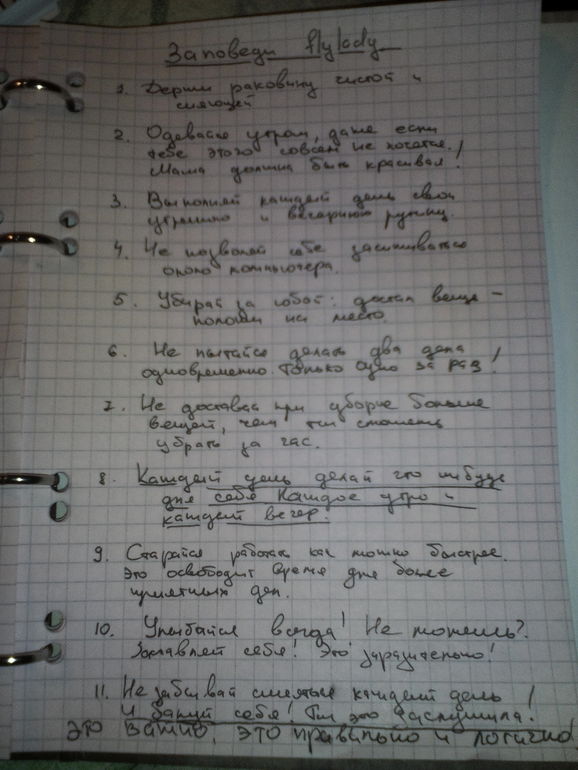 Заповеди flylady
1. Держи раковину чистой и
сияющей
2. Одевайся утром, даже если
тебе этого совсем не хочется.
Мама должна быть красивая!
3. Выполняй каждый день свои
утреннюю и вечернюю рутину.
4. Не позволяй себе засиживаться
около компьютера.
5. Убирай за собой: достал вещь –
положи на место.
6. Не пытайся делать два дела
одновременно. Только одно за раз!
7. Не доставай при уборке больше
вещей, чем ты сможешь
убрать за час.
8. Каждый день делай что нибудь
для себя Каждое утро и
каждый вечер.
9. Старайся работать как можно быстрее.
Это освободит время для более
приятных дел.
10. Улыбайся всегда! Не можешь?
Заставляй себя! Это заразительно!
11. Не забывай смеяться каждый день!
И балуй себя! Ты это заслужила!
это важно, это правильно и логично!